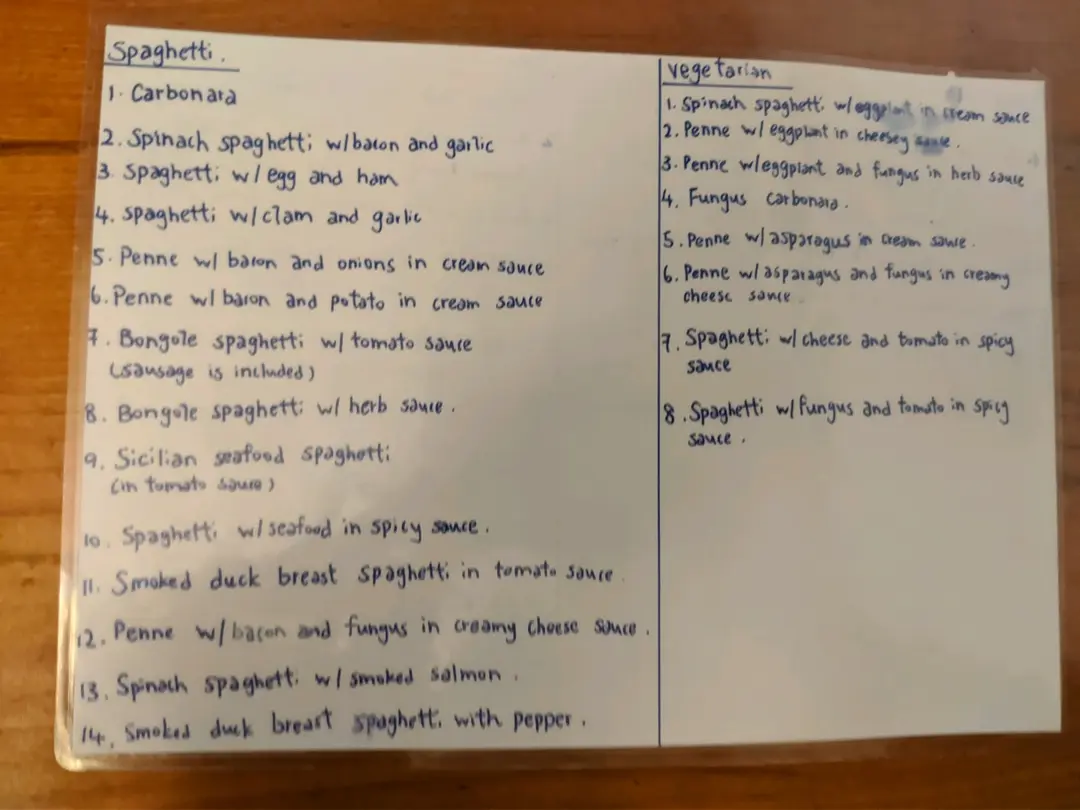 Spaghetti.
1. Carbonara
2. Spinach spaghetti w/bacon and garlic
3. Spaghetti w/egg and ham
4. spaghetti w/clam and garlic
5. Penne w/ bacon and onions in cream sauce
6. Penne w/ bacon and potato in cream sauce
7. Bongole spaghetti w/ tomato sauce
(sausage is included)
8. Bongole spaghetti w/ herb sauce.
9. Sicilian seafood spaghetti
(in tomato sauce)
10. Spaghetti w/seafood in spicy sauce.
11. Smoked duck breast spaghetti in tomato sauce
12. Penne w/bacon and fungus in creamy cheese sauce.
13. Spinach spaghetti w/ smoked salmon.
14. Smoked duck breast spaghetti with pepper.
vegetarian
1. Spinach spaghetti w/eggplant in cream sauce
2. Penne w/ eggplant in cheesey sauce.
3. Penne w/eggplant and fungus in herb sauce
4. Fungus carbonara.
5. Penne w/asparagus in cream sauce.
6. Penne w/asparagus and fungus in creamy
cheese sauce
7. Spaghetti w/ cheese and tomato in spicy
sauce
8. Spaghetti w/fungus and tomato in spicy
sauce.